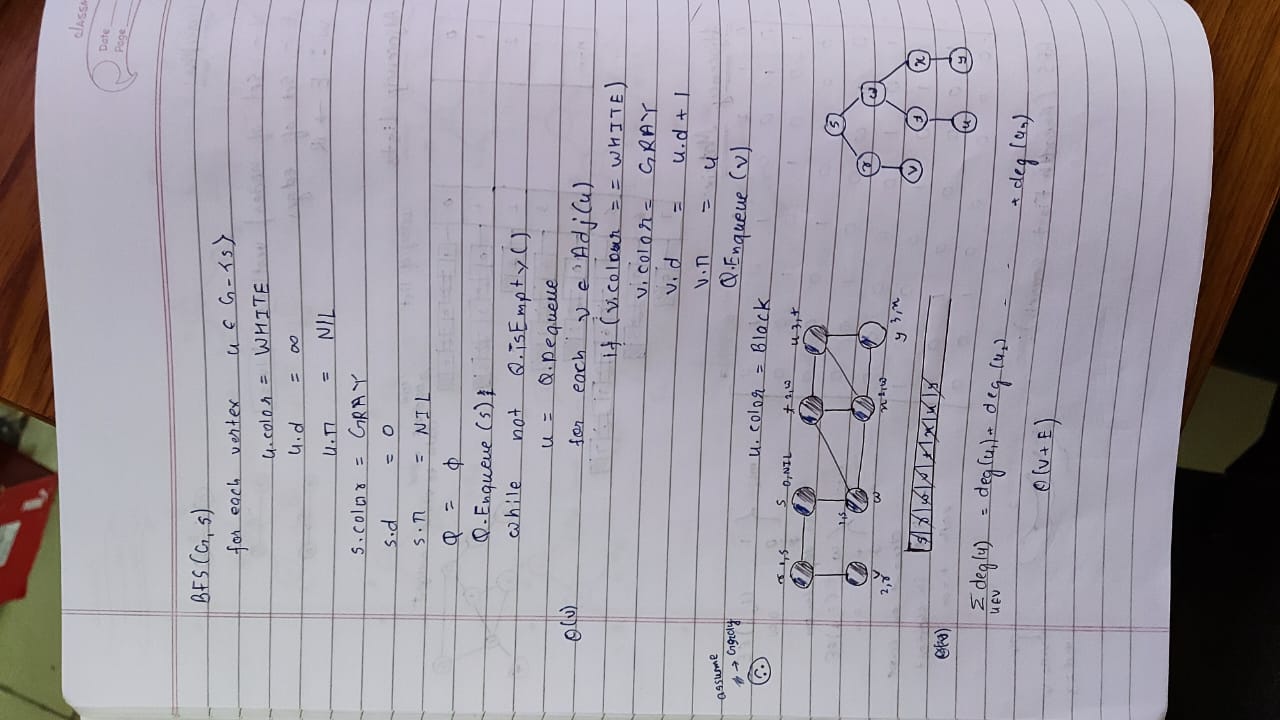 classmate
Date
Page
BFS(G, s)
for each vertex u ∈ G-{s}
u.color = WHITE
u.d = ∞
u.π = NIL
s.color = GRAY
s.d = 0
s.π = NIL
Q = ϕ
Q.Enqueue(s);
while not Q.isEmpty()
θ(V)
u = Q.Dequeue
for each v ∈ Adj(u)
if (v.colour == WHITE)
v.color = GRAY
v.d = u.d + 1
v.π = u
Q.Enqueue (v)
u.color = Black
assume
→ Gray
r 1,s
s 0,NIL
t 2,w
u 3,t
v
2,r
1,s
w
x 2,w
y 3,x
s
r
w
v
t
x
u
y
Σ deg(u) = deg(u₁) + deg(u₂) - - + deg(uₙ)
u∈V
θ(V+E)